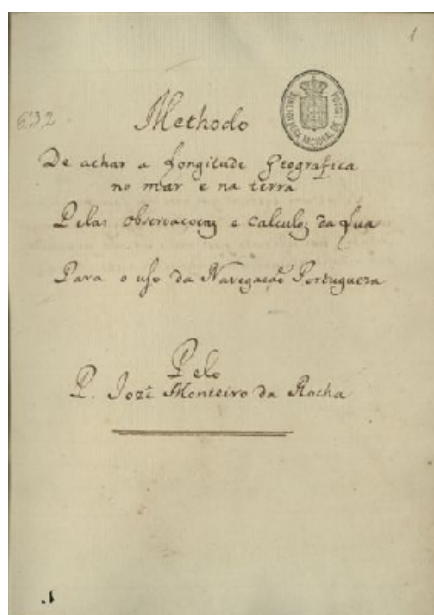 1
Methodo
De achar a Longitude Geografica
no mar e na terra
Pelas observaçoens e calculos da Lua
Para o uso da Navegação Portugueza
Pelo
P. Jozé Monteiro da Rocha